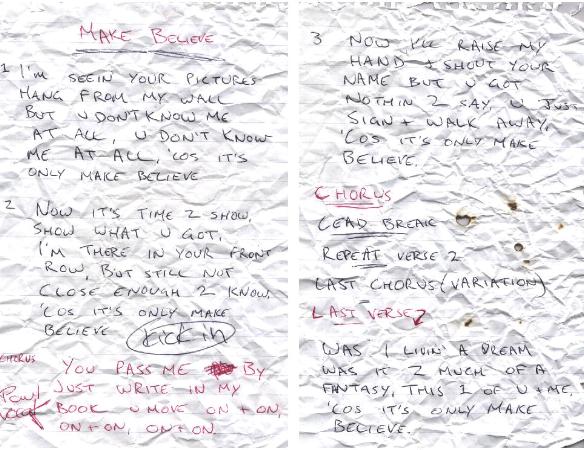 MAKE BELIEVE
1 I'M SEEIN YOUR PICTURES
HANG FROM MY WALL
BUT U DON'T KNOW ME
AT ALL, U DON'T KNOW
ME AT ALL, 'COS IT'S
ONLY MAKE BELIEVE
2 NOW IT'S TIME 2 SHOW,
SHOW WHAT U GOT,
I'M THERE IN YOUR FRONT
ROW, BUT STILL NOT
CLOSE ENOUGH 2 KNOW,
'COS IT'S ONLY MAKE
BELIEVE kick in
CHORUS
YOU PASS ME BY
JUST WRITE IN MY
BOOK U MOVE ON + ON,
ON + ON, ON + ON
3 NOW I'LL RAISE MY
HAND + SHOUT YOUR
NAME BUT U GOT
NOTHIN 2 SAY, U JUST
SIGN + WALK AWAY,
'COS IT'S ONLY MAKE
BELIEVE.
CHORUS
LEAD BREAK
REPEAT VERSE 2
LAST CHORUS (VARIATION)
LAST VERSE
WAS I LIVIN' A DREAM
WAS IT 2 MUCH OF A
FANTASY, THIS 1 OF U + ME,
'COS IT'S ONLY MAKE
BELIEVE.